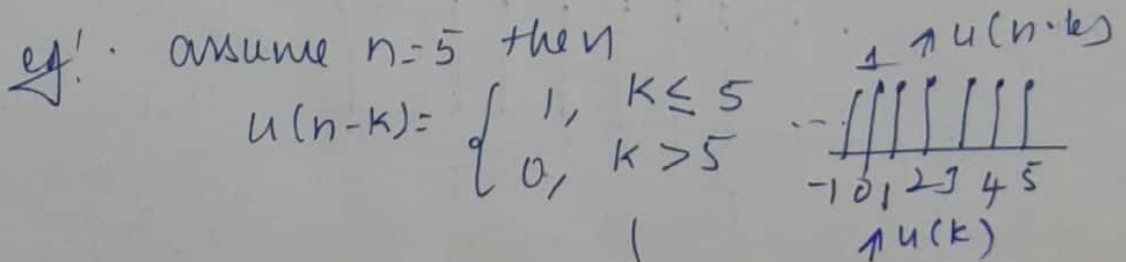 eg! . assume n=5 then
u(n-k)= { 1, k ≤ 5
0, k > 5
1 ↑ u(n-k)
-1 0 1 2 3 4 5
↑ u(k)